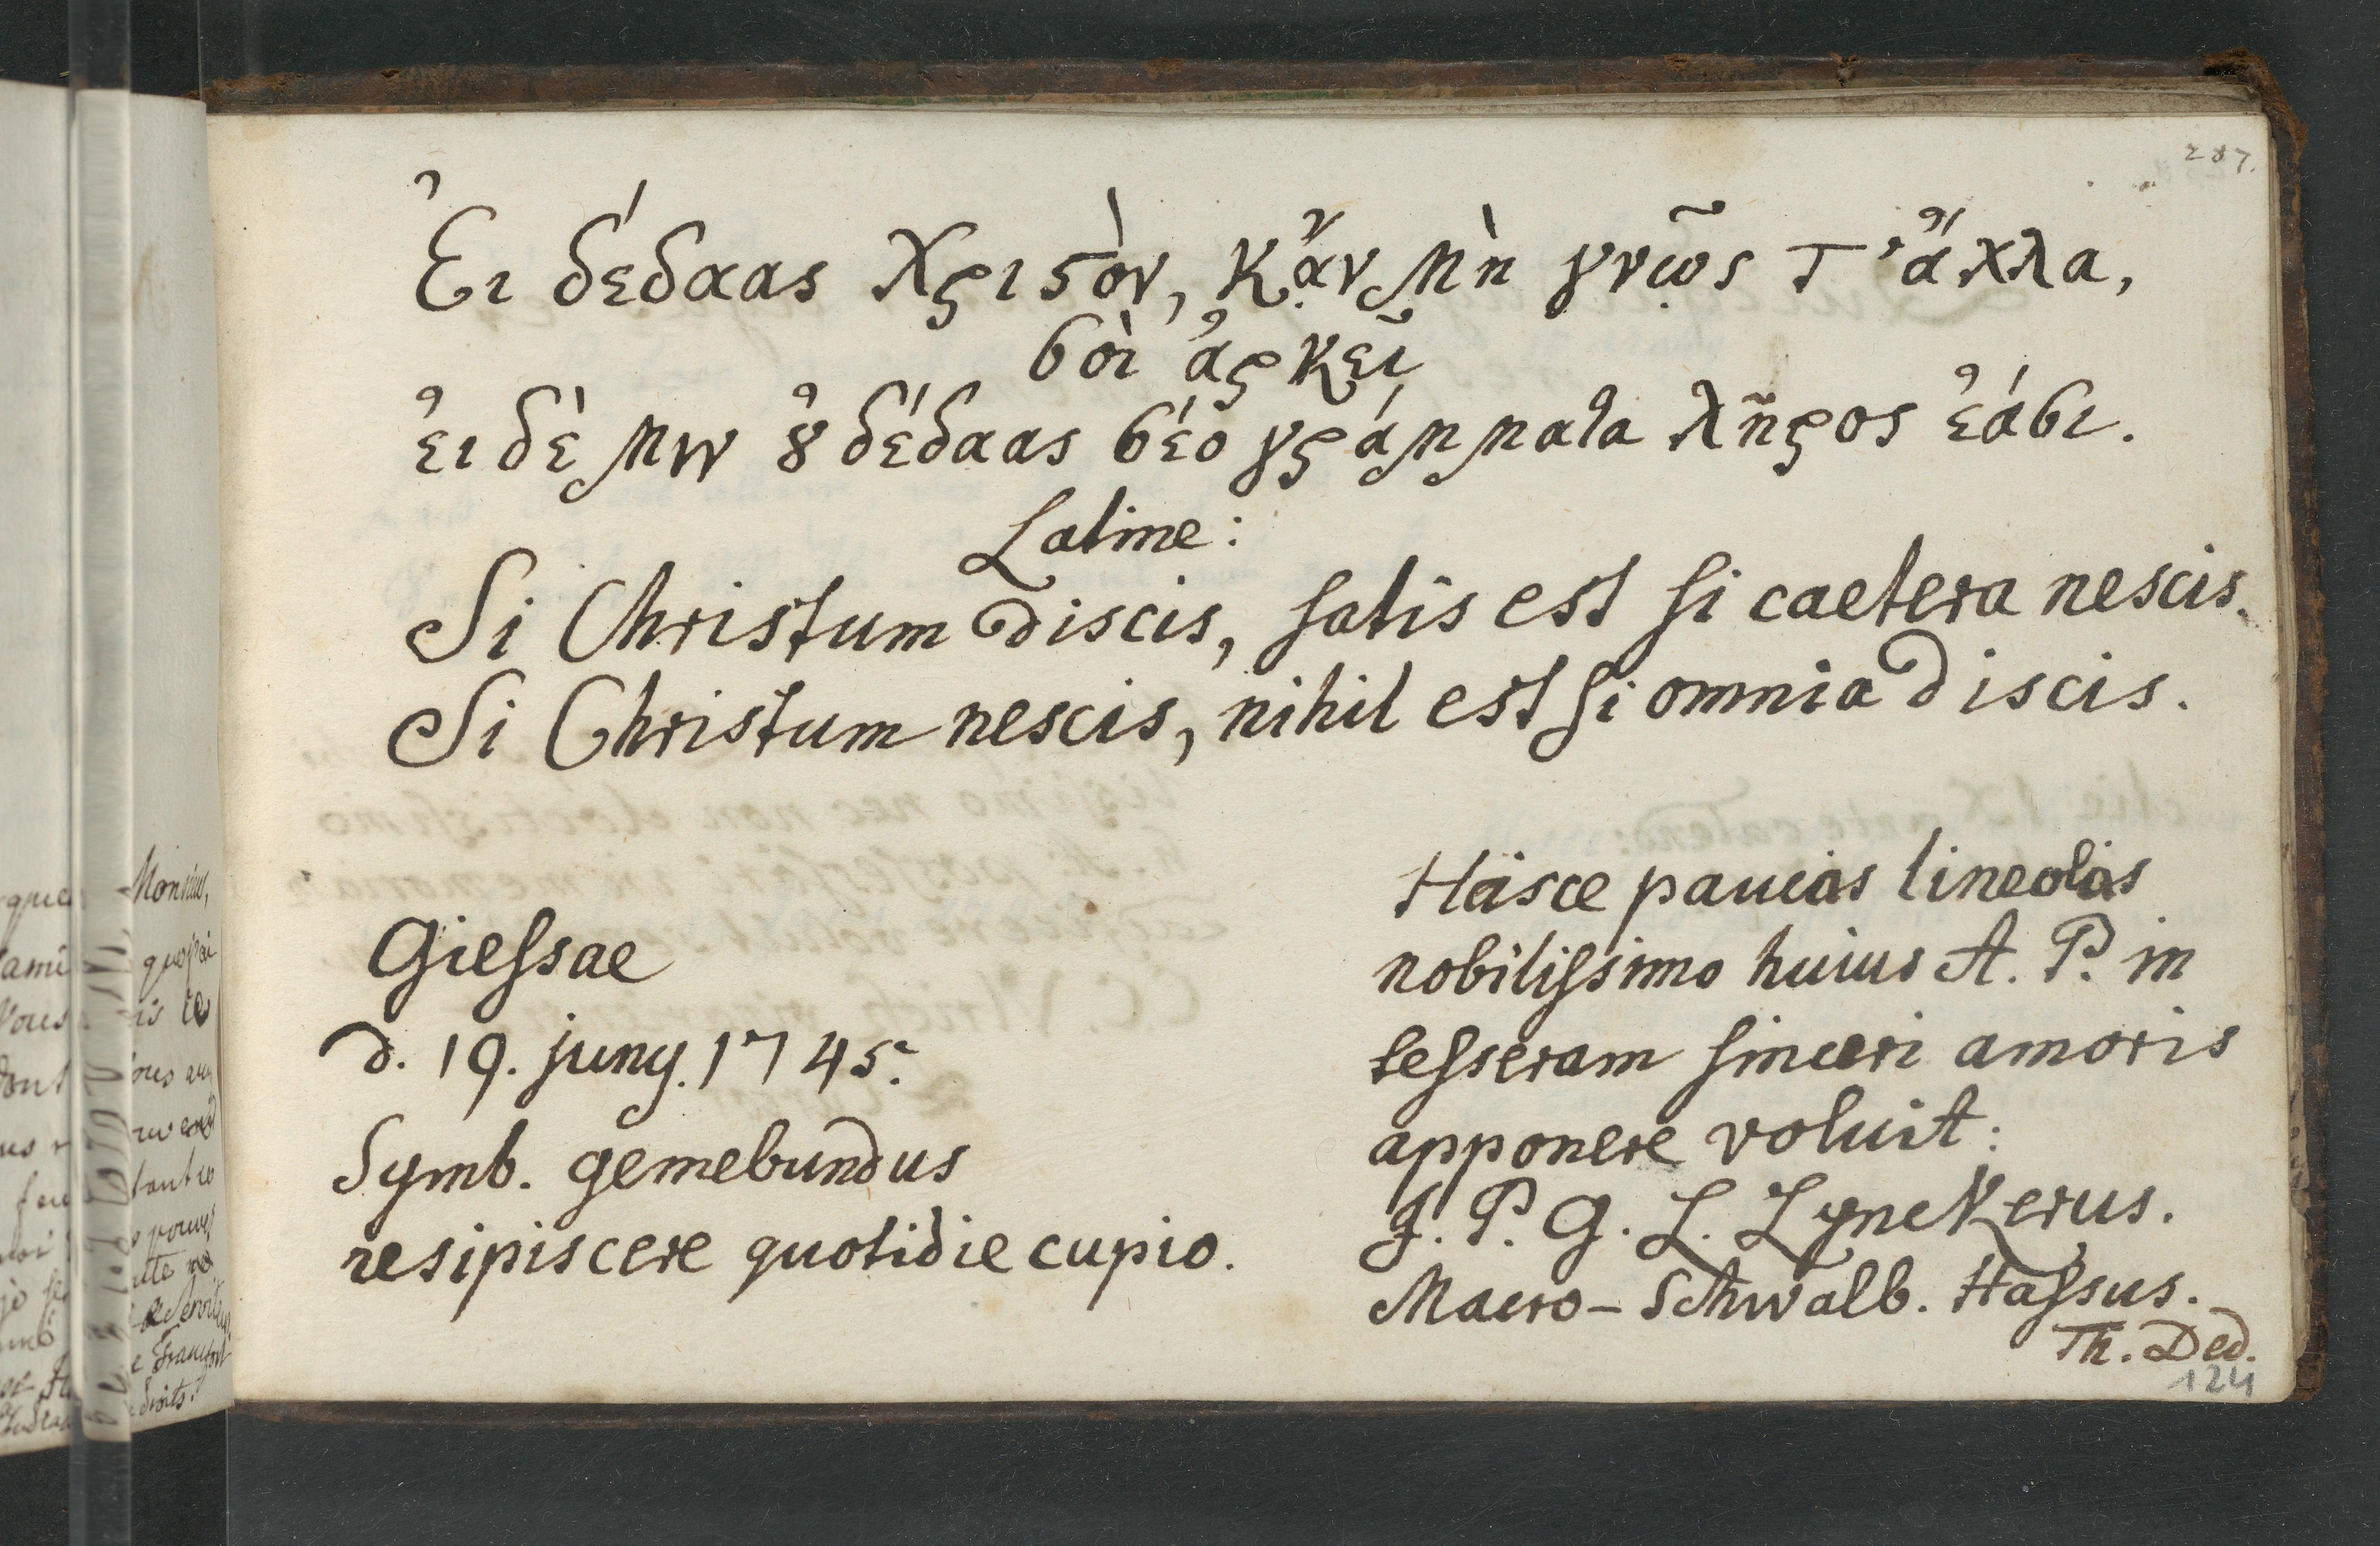 287.
Ἐι δέδαας Χριϛὸν, κἂν μὴ γνῶς τ'ἄλλα,
σοὶ ἀρκεῖ
ἐι δὲ μιν ȣ̓ δέδαας σέο γράμματα λῆρος ἐάσι.
Latine:
Si Christum discis, satis est si caetera nescis.
Si Christum nescis, nihil est si omnia discis.
Giessae
d. 19. juny. 1745.
Symb. gemebundus
resipiscere quotidie cupio.
Hasce paucas lineolas
nobilissimo huius A. P. in
tesseram sinceri amoris
apponere voluit:
J. P. G. L. Lynckerus.
Macro-Schwalb. Hassus.
Th. Ded.
124